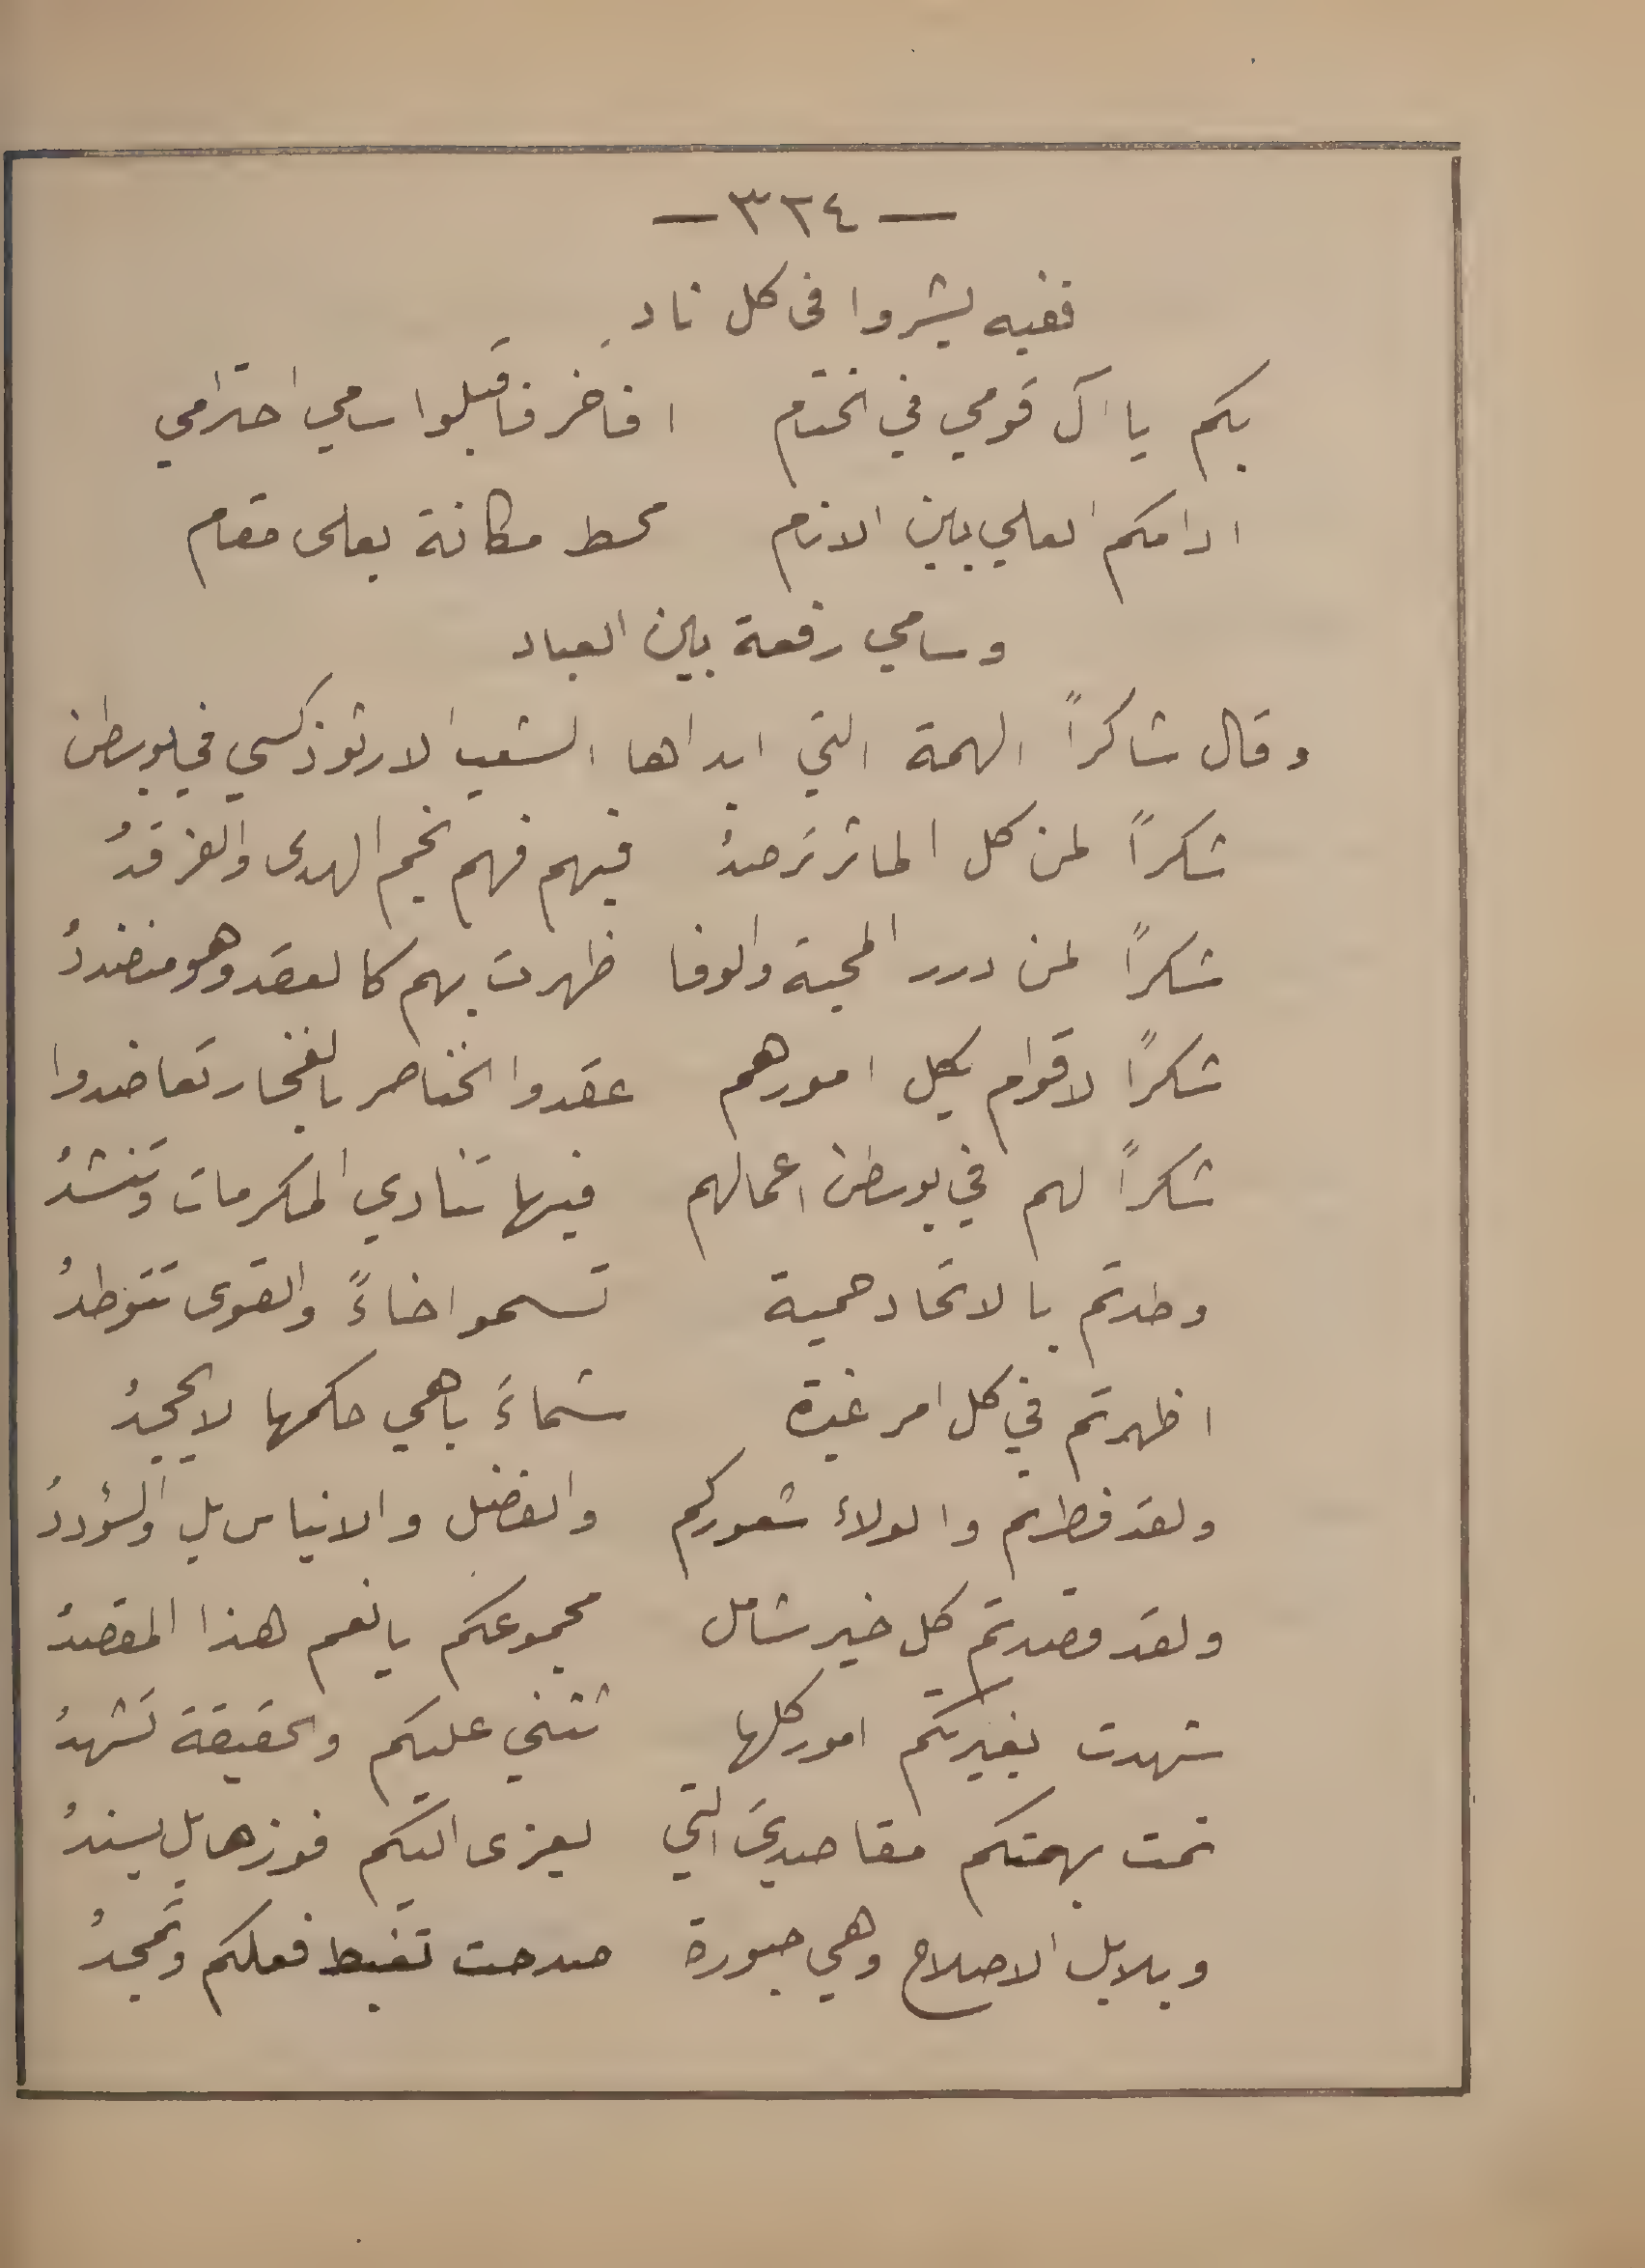 — ٣٢٤ —
ففيه بشروا في كل نادِ
بكم يا آل قومي في الختام افاخر فاقبلوا سامي احترامي
ادامكم العلي بين الانام محط مكانة بعلى مقام
وسامي رفعة بين العباد
وقال شاكراً الهمة التي ابداها الشعب الارثوذكسي في بوسطن
شكراً لمن كل المآثر ترصدُ فيهم فهم نجم الهدى والفرقدُ
شكراً لمن درر المحبة والوفا ظهرت بهم كالعقد وهو منضدُ
شكراً لاقوام بكل امورهم عقدوا الخناصر بالفخار تعاضدوا
شكراً لهم في بوسطن اعمالهم فيها تنادي المكرمات وتنشدُ
وطدتم بالاتحاد حمية تسمو اخاءً والقوى تتوطدُ
اظهرتم في كل امر غيرة شماءَ باهي حكمها لا يجحدُ
ولقد فطرتم والولاء شعوركم والفضل والايناس بل والسؤددُ
ولقد قصدتم كل خير شامل مجموعكم يا نعم هذا المقصدُ
شهدت بغيرتكم امور كلها تثني عليكم والحقيقة تشهدُ
تمت بهمتكم مقاصديَ التي يعزى اليكم فوزها بل يسندُ
وبلابل الاصلاح وهي جبورة صدحت تغبط فعلكم وتمجدُ